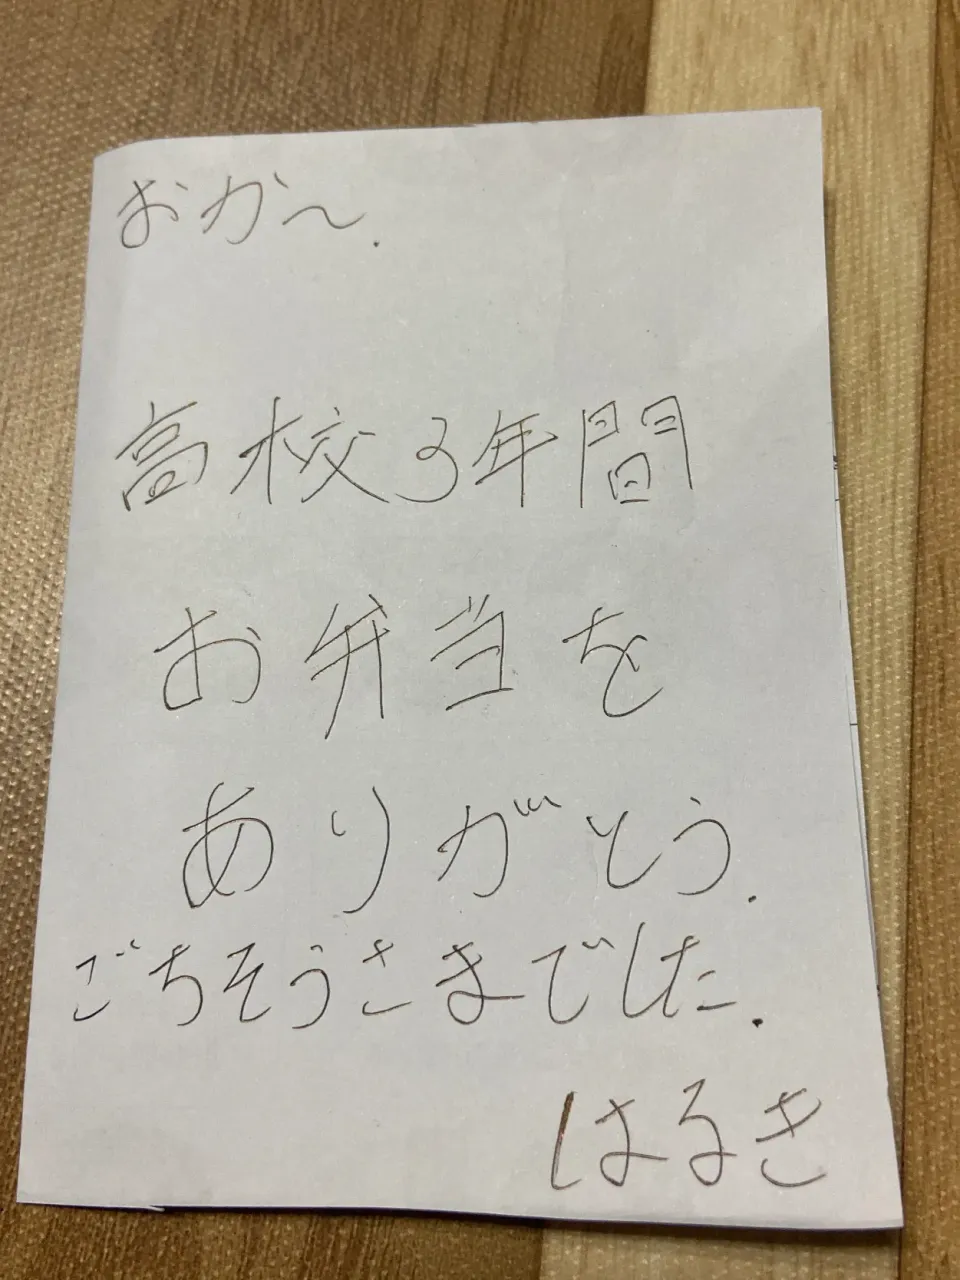 おかん.
高校3年間
お弁当を
ありがとう.
ごちそうさまでした.
はるき